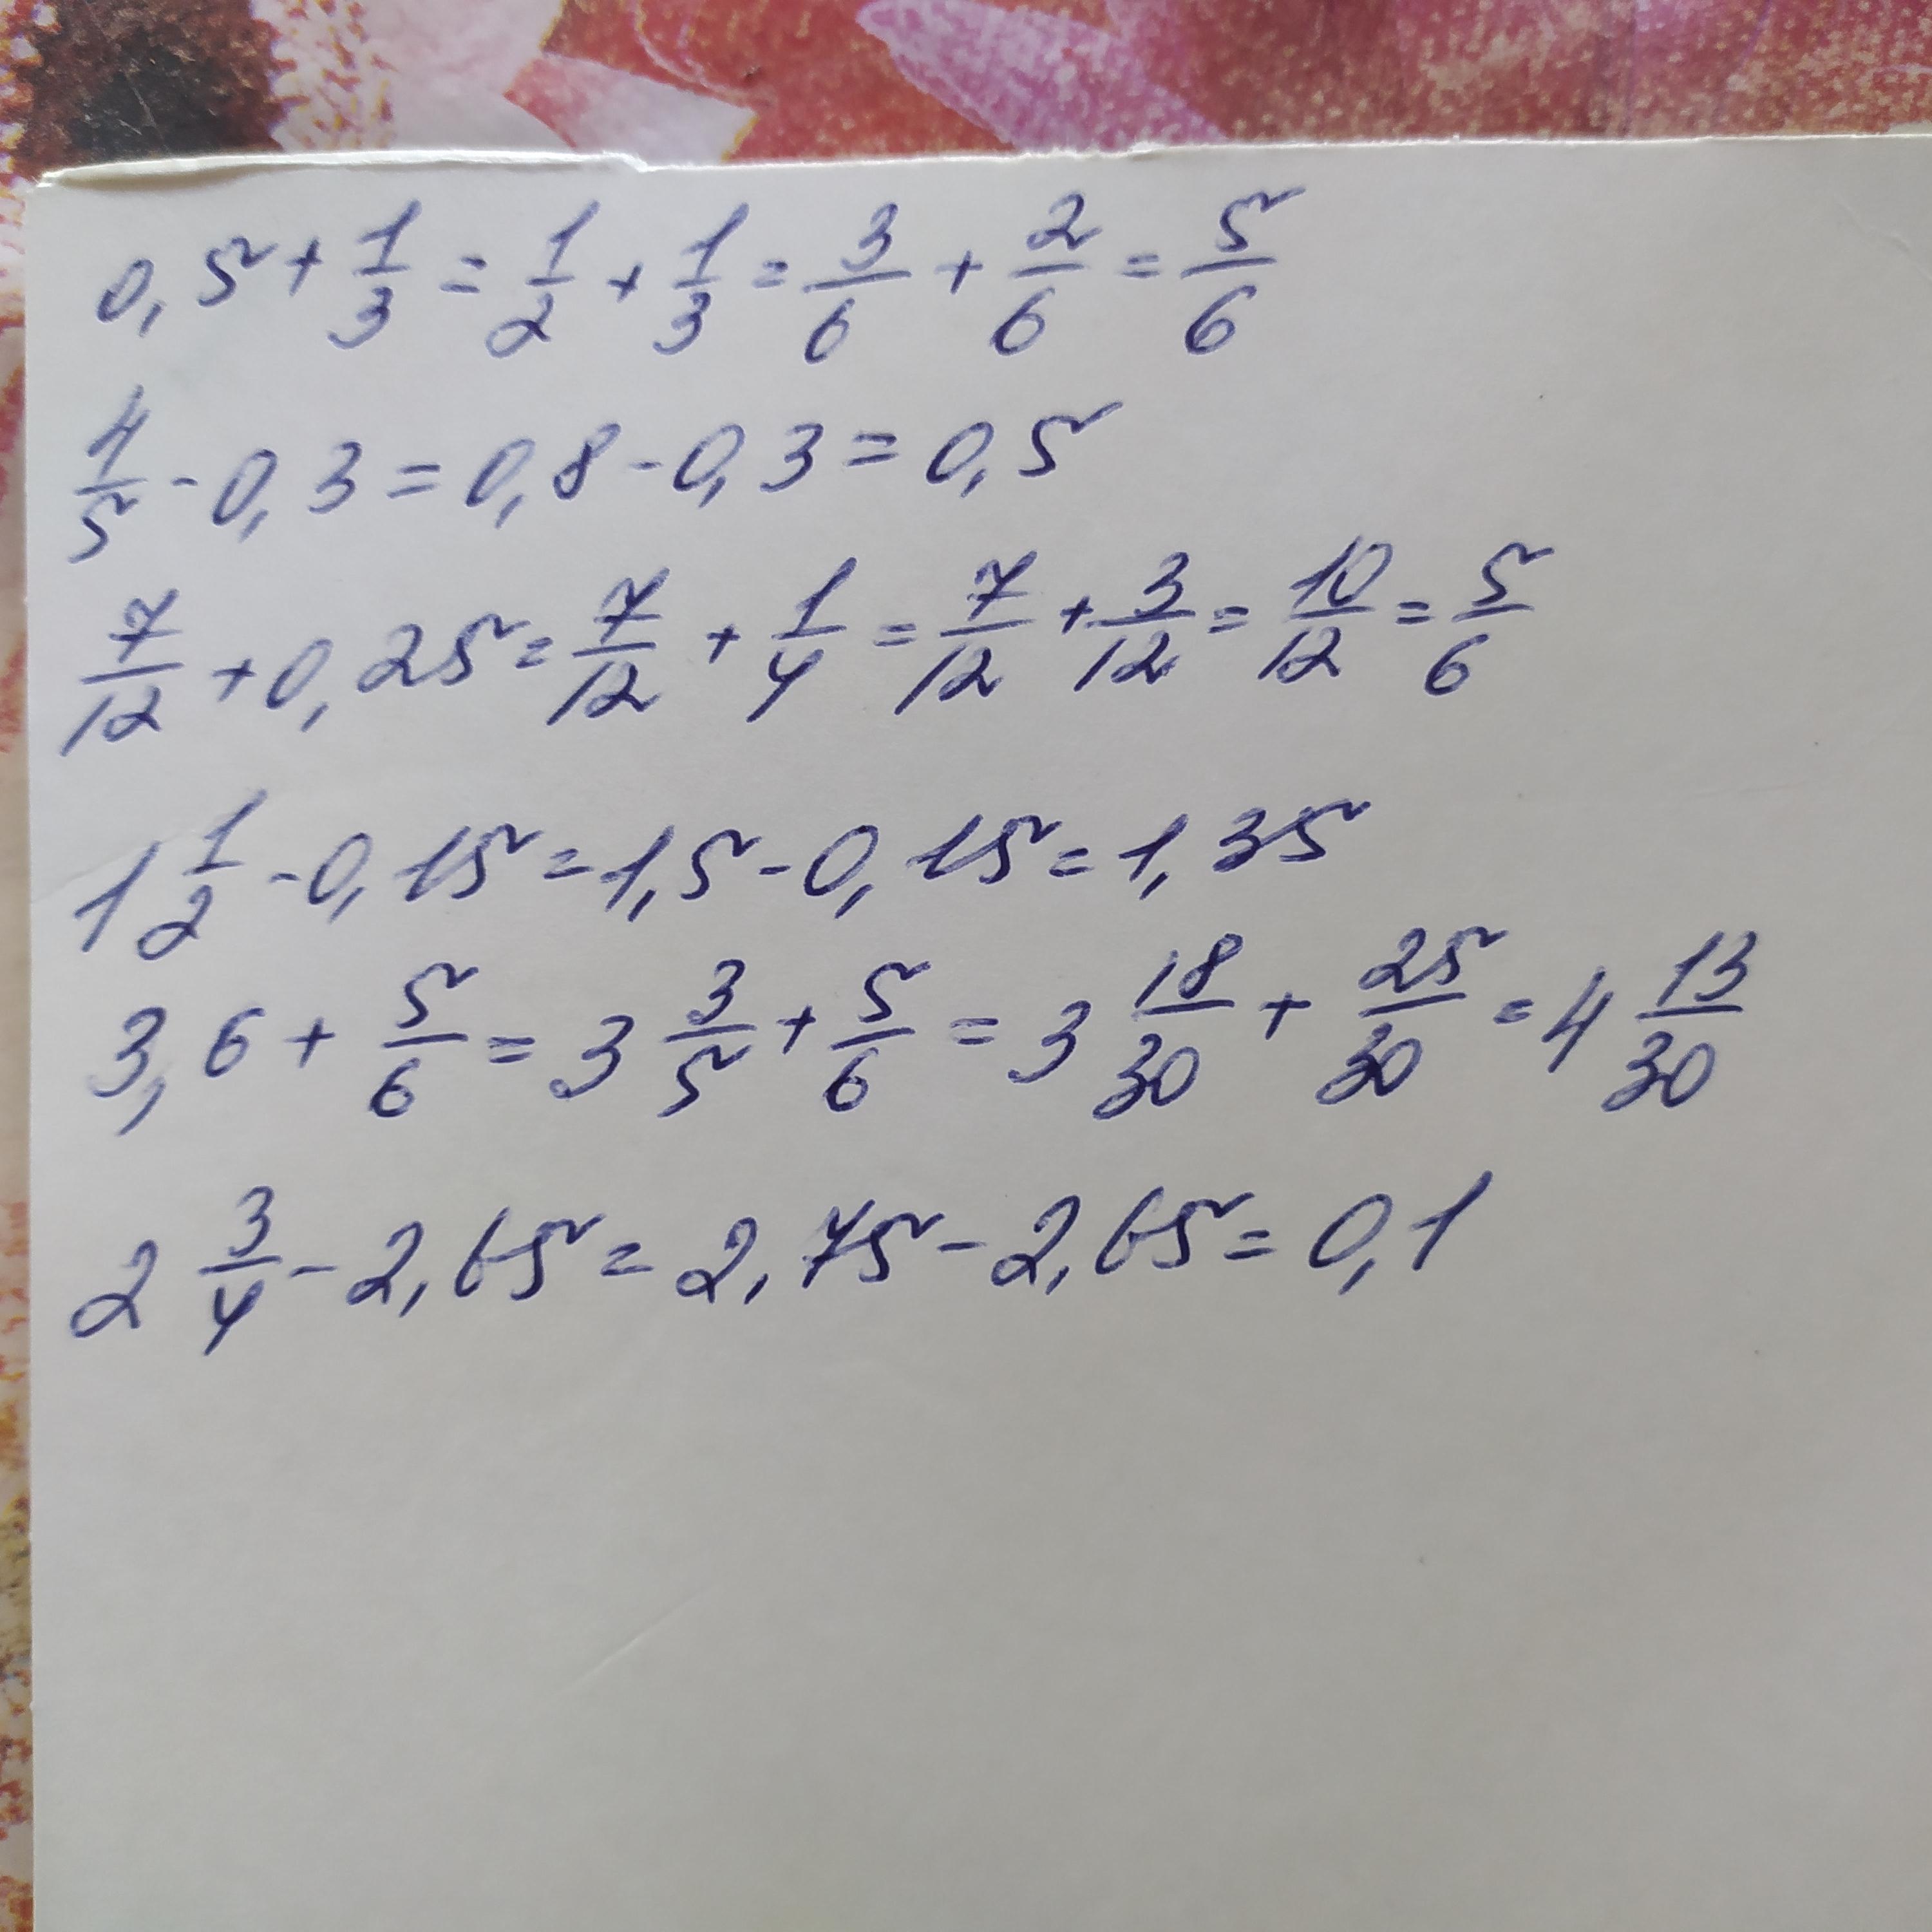 0,5 + 1/3 = 1/2 + 1/3 = 3/6 + 2/6 = 5/6
4/5 - 0,3 = 0,8 - 0,3 = 0,5
7/12 + 0,25 = 7/12 + 1/4 = 7/12 + 3/12 = 10/12 = 5/6
1 1/2 - 0,15 = 1,5 - 0,15 = 1,35
3,6 + 5/6 = 3 3/5 + 5/6 = 3 18/30 + 25/30 = 4 13/30
2 3/4 - 2,65 = 2,75 - 2,65 = 0,1